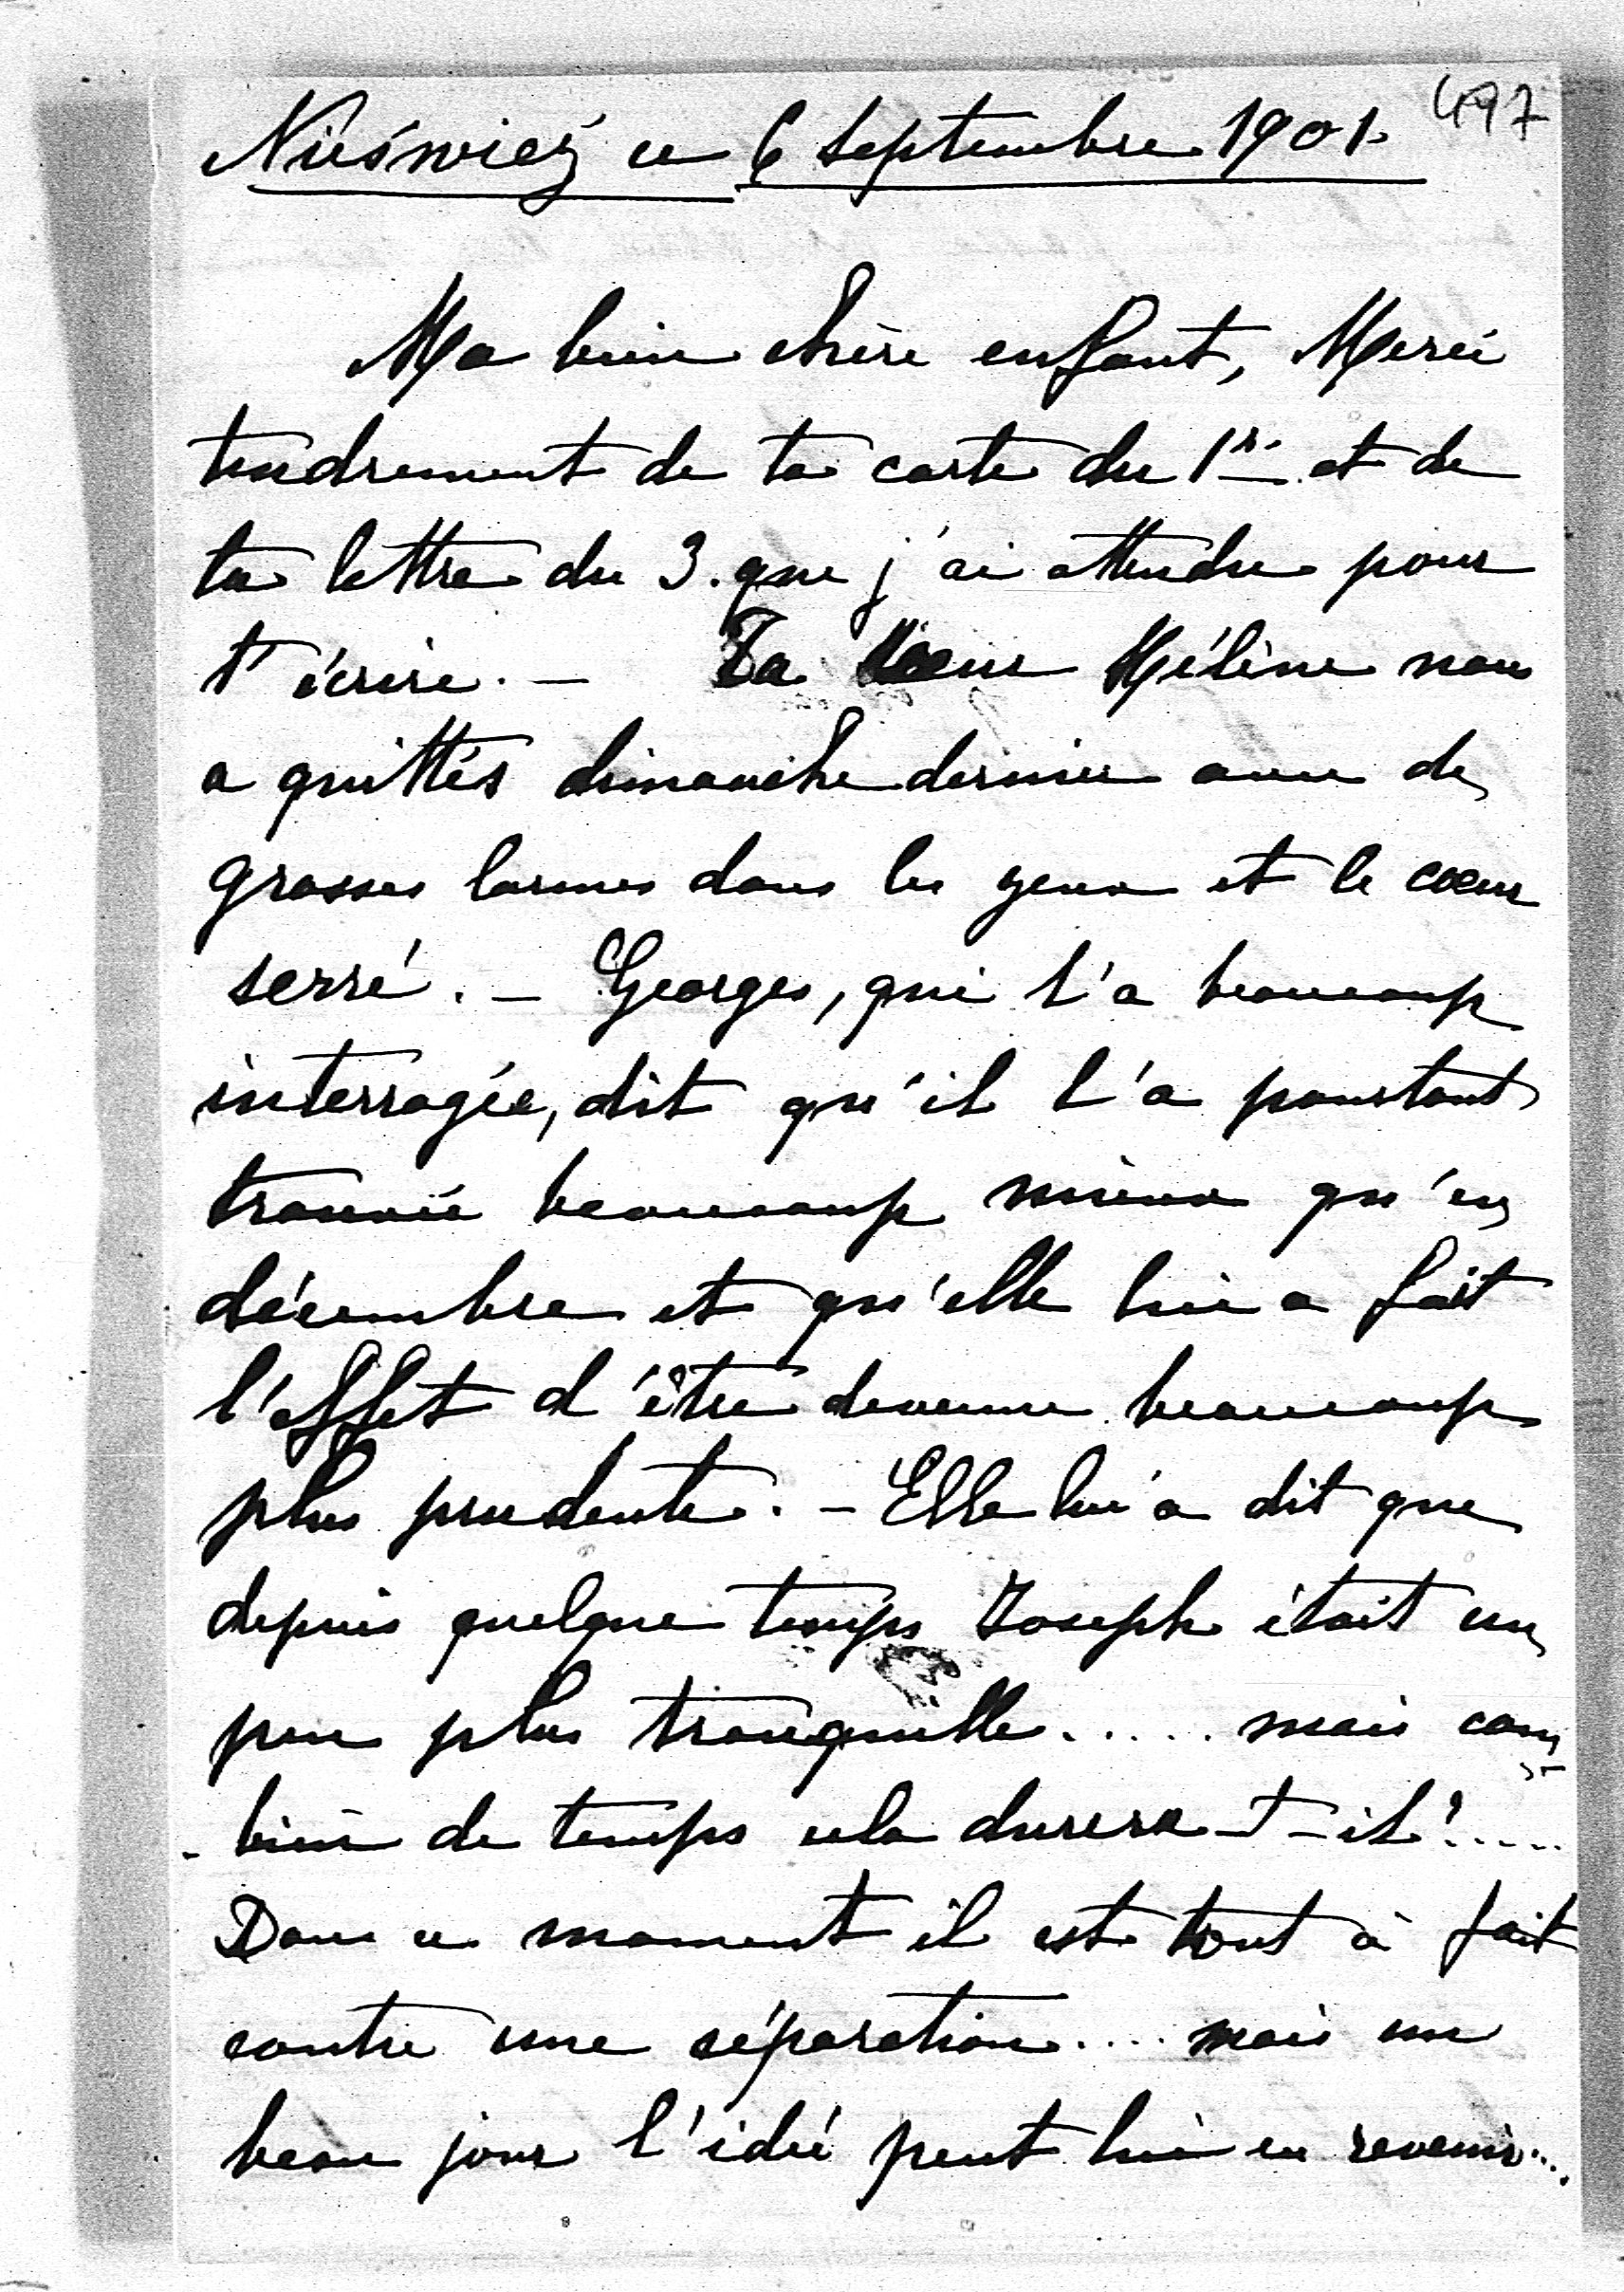 497
Nieśwież ce 6 Septembre 1901.
Ma bien chère enfant, Merci
tendrement de ta carte du 1er. et de
ta lettre du 3. que j'ai attendue pour
t'écrire. — Ta sœur Hélène nous
a quittés dimanche dernier avec de
grosses larmes dans les yeux et le cœur
serré. — Georges, qui l'a beaucoup
interrogée, dit qu'il l'a pourtant
trouvée beaucoup mieux qu'en
décembre et qu'elle lui a fait
l'effet d'être devenue beaucoup
plus prudente. — Elle lui a dit que
depuis quelque temps Joseph était un
peu plus tranquille ..... mais com
- bien de temps cela durera-t-il! .....
Dans ce moment il est tout à fait
contre une séparation .... mais un
beau jour l'idée peut lui en revenir....